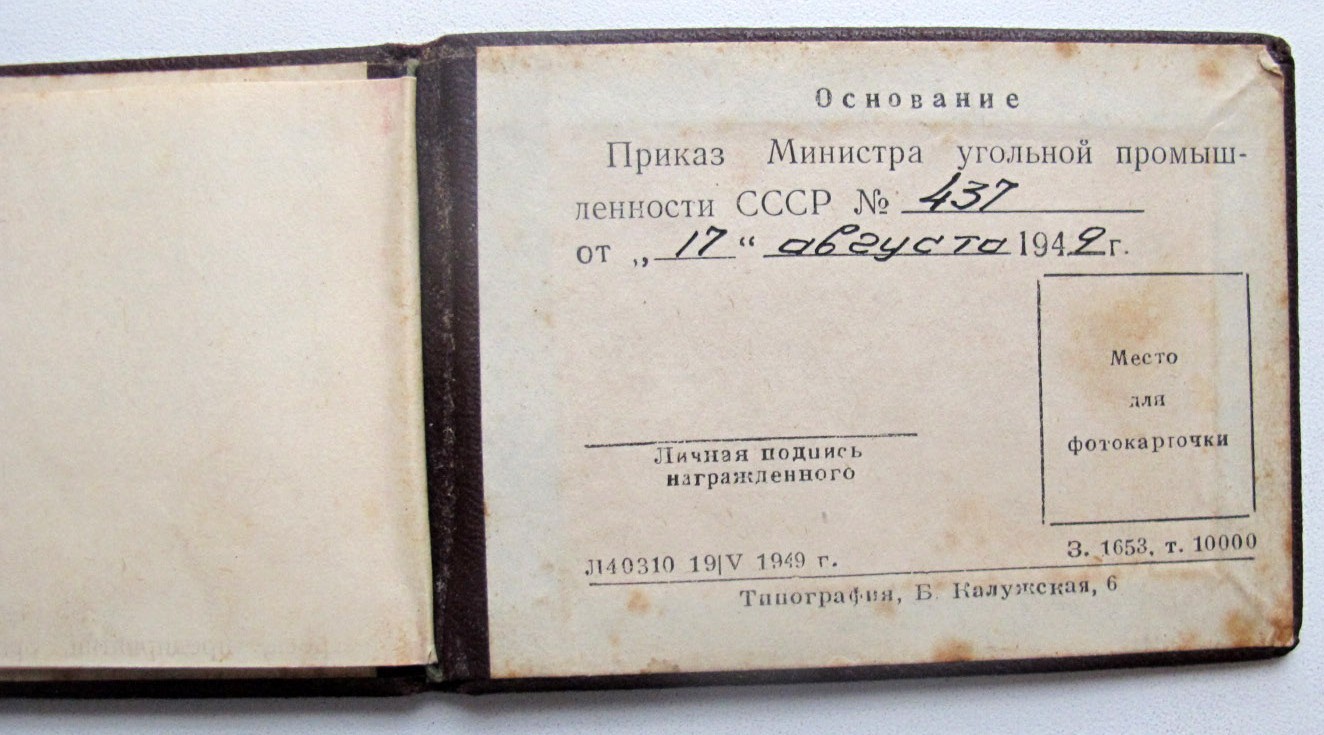 Основание
Приказ Министра угольной промыш-
ленности СССР № 437
от „ 17 “ августа 1949 г.
Место
для
фотокарточки
Личная подпись
награжденного
Л40310 19|V 1949 г.
З. 1653, т. 10000
Типография, Б. Калужская, 6